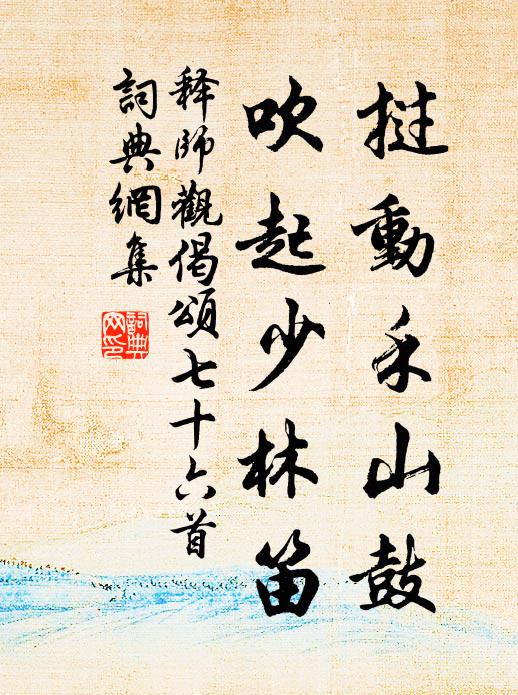 撻動禾山鼓
吹起少林笛
释師觀偈頌七十六首
詞典網集
詞典網印